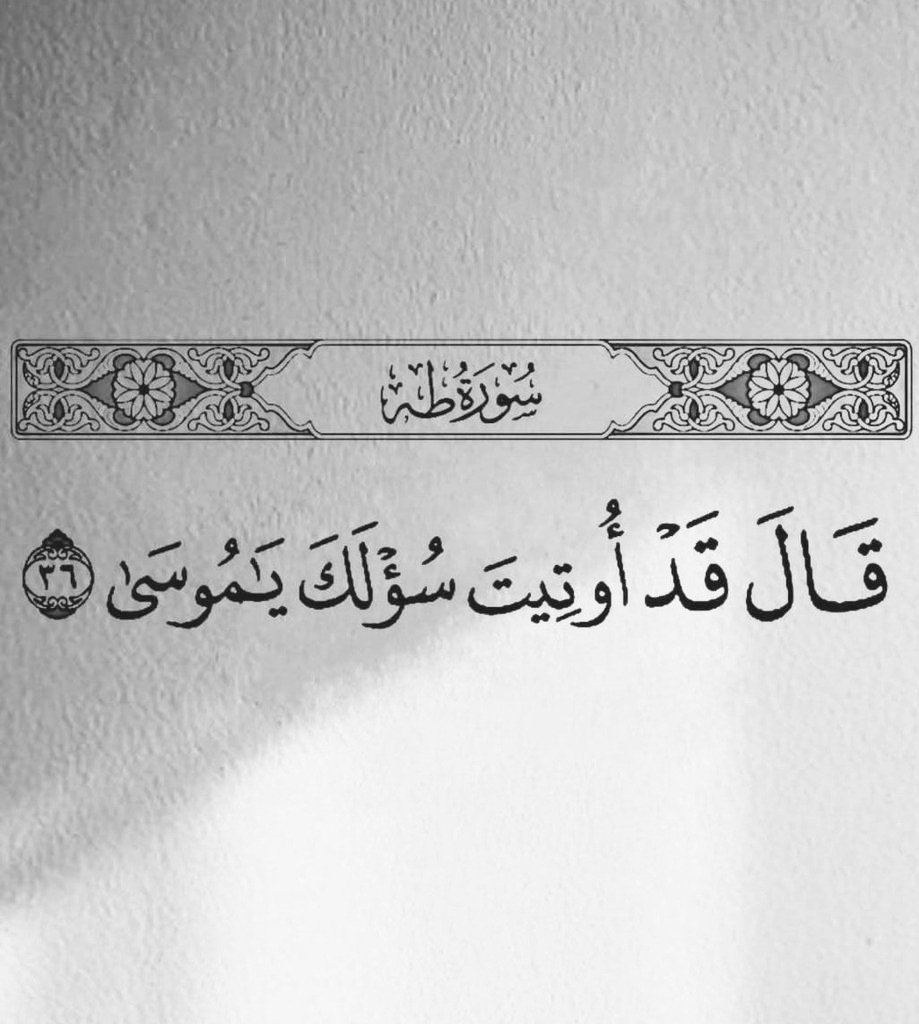 سُورَةُ طه
قَالَ قَدْ أُوتِيتَ سُؤْلَكَ يَـٰمُوسَىٰ ٣٦